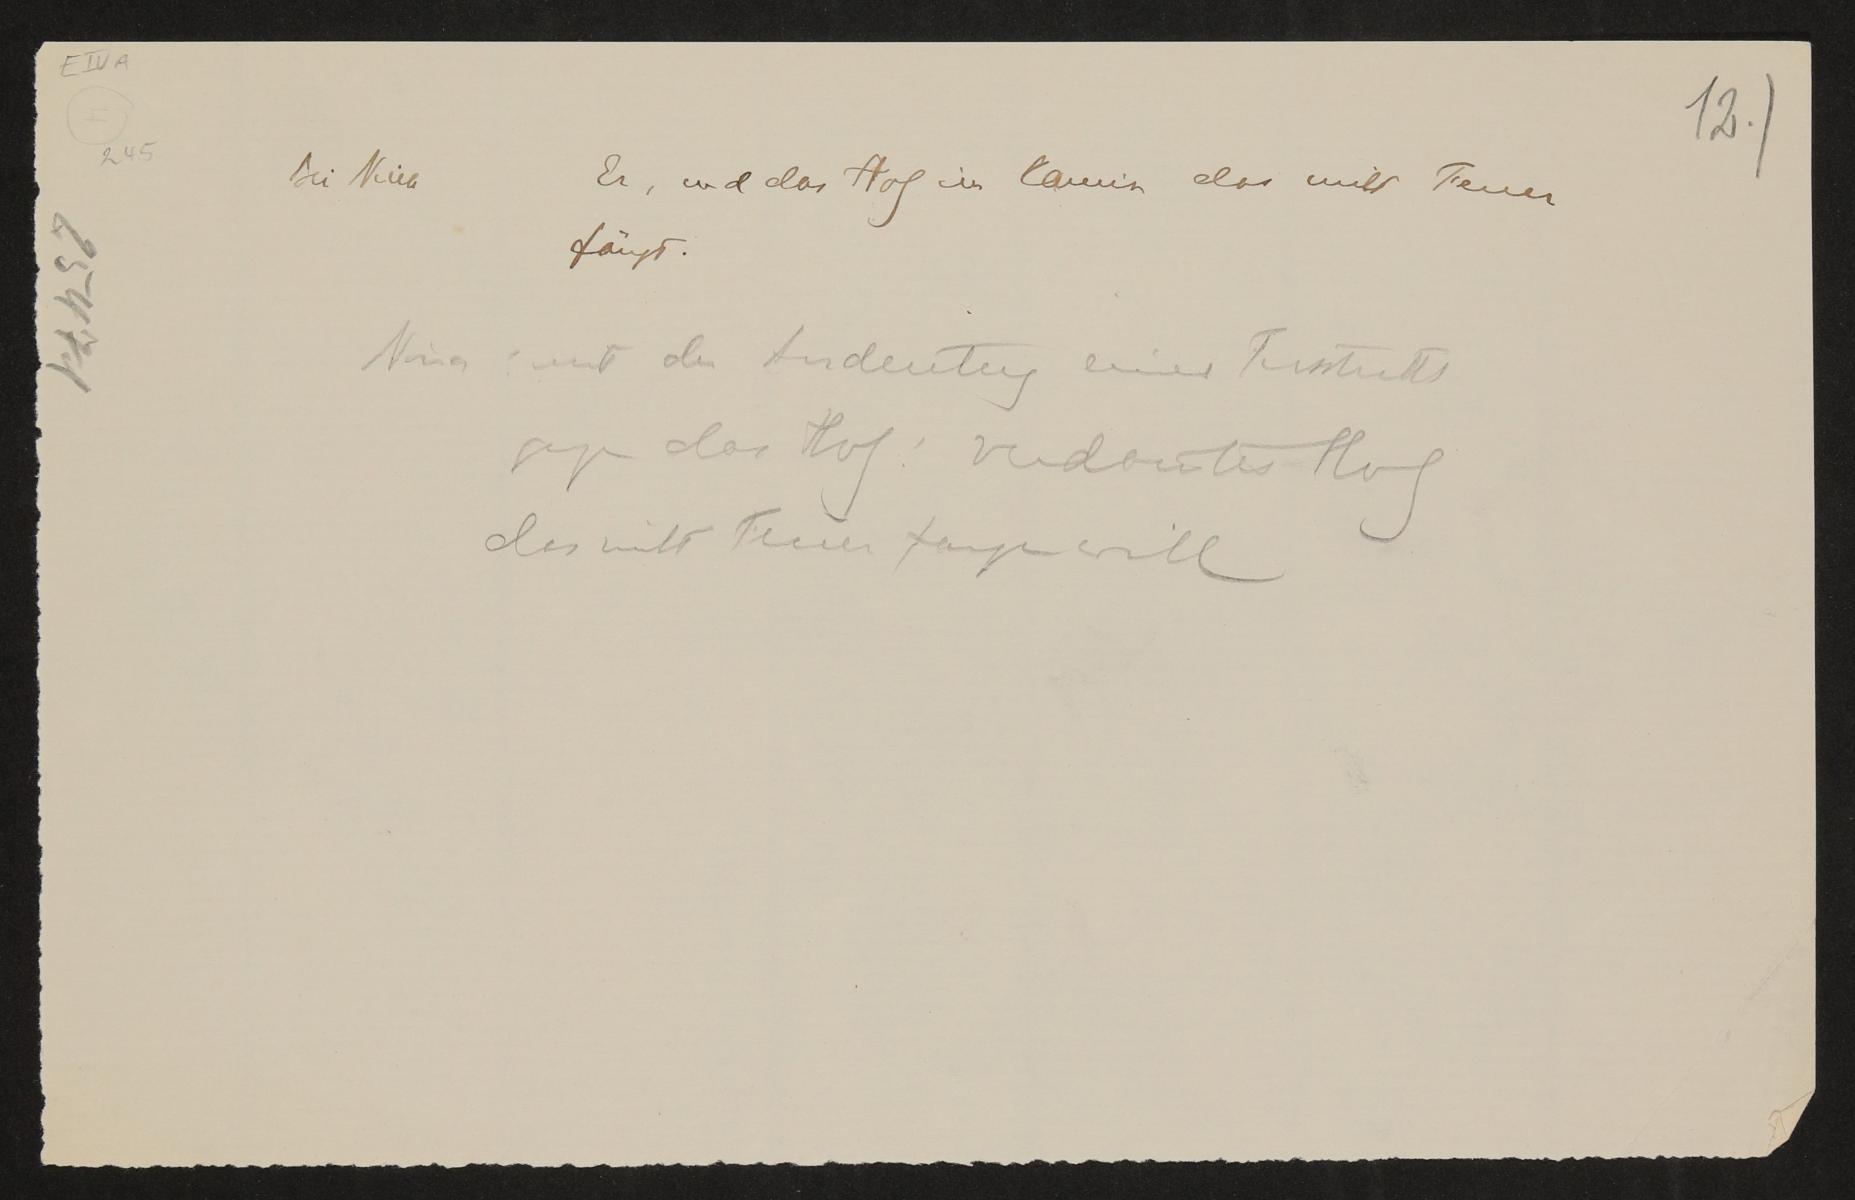 E IV A
I
245
12.)
Bei Nina Er, und das Holz im Kamin das nicht Feuer
fängt.
Nina: mit der Andeutung eines Fusstritts
gegen das Holz: verdammtes Holz
das nicht Feuer fangen will